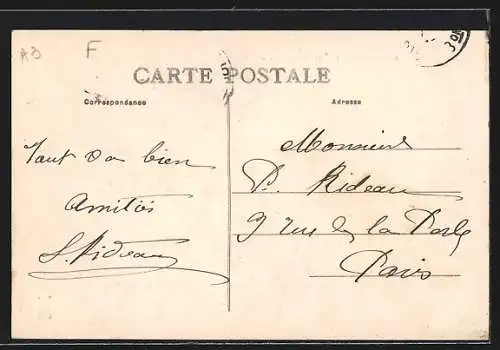 A3 F
CARTE POSTALE
Correspondance
Adresse
Tout va bien
Amitiés
S. Rideau
Monsieur
P. Rideau
9 rue de la
Paris